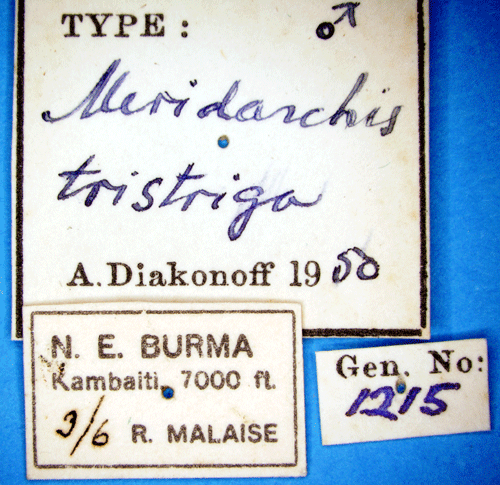 TYPE: ♂
Meridarchis
tristriga
A. Diakonoff 1950
N. E. BURMA
Kambaiti, 7000 ft.
3/6 R. MALAISE
Gen. No:
1215